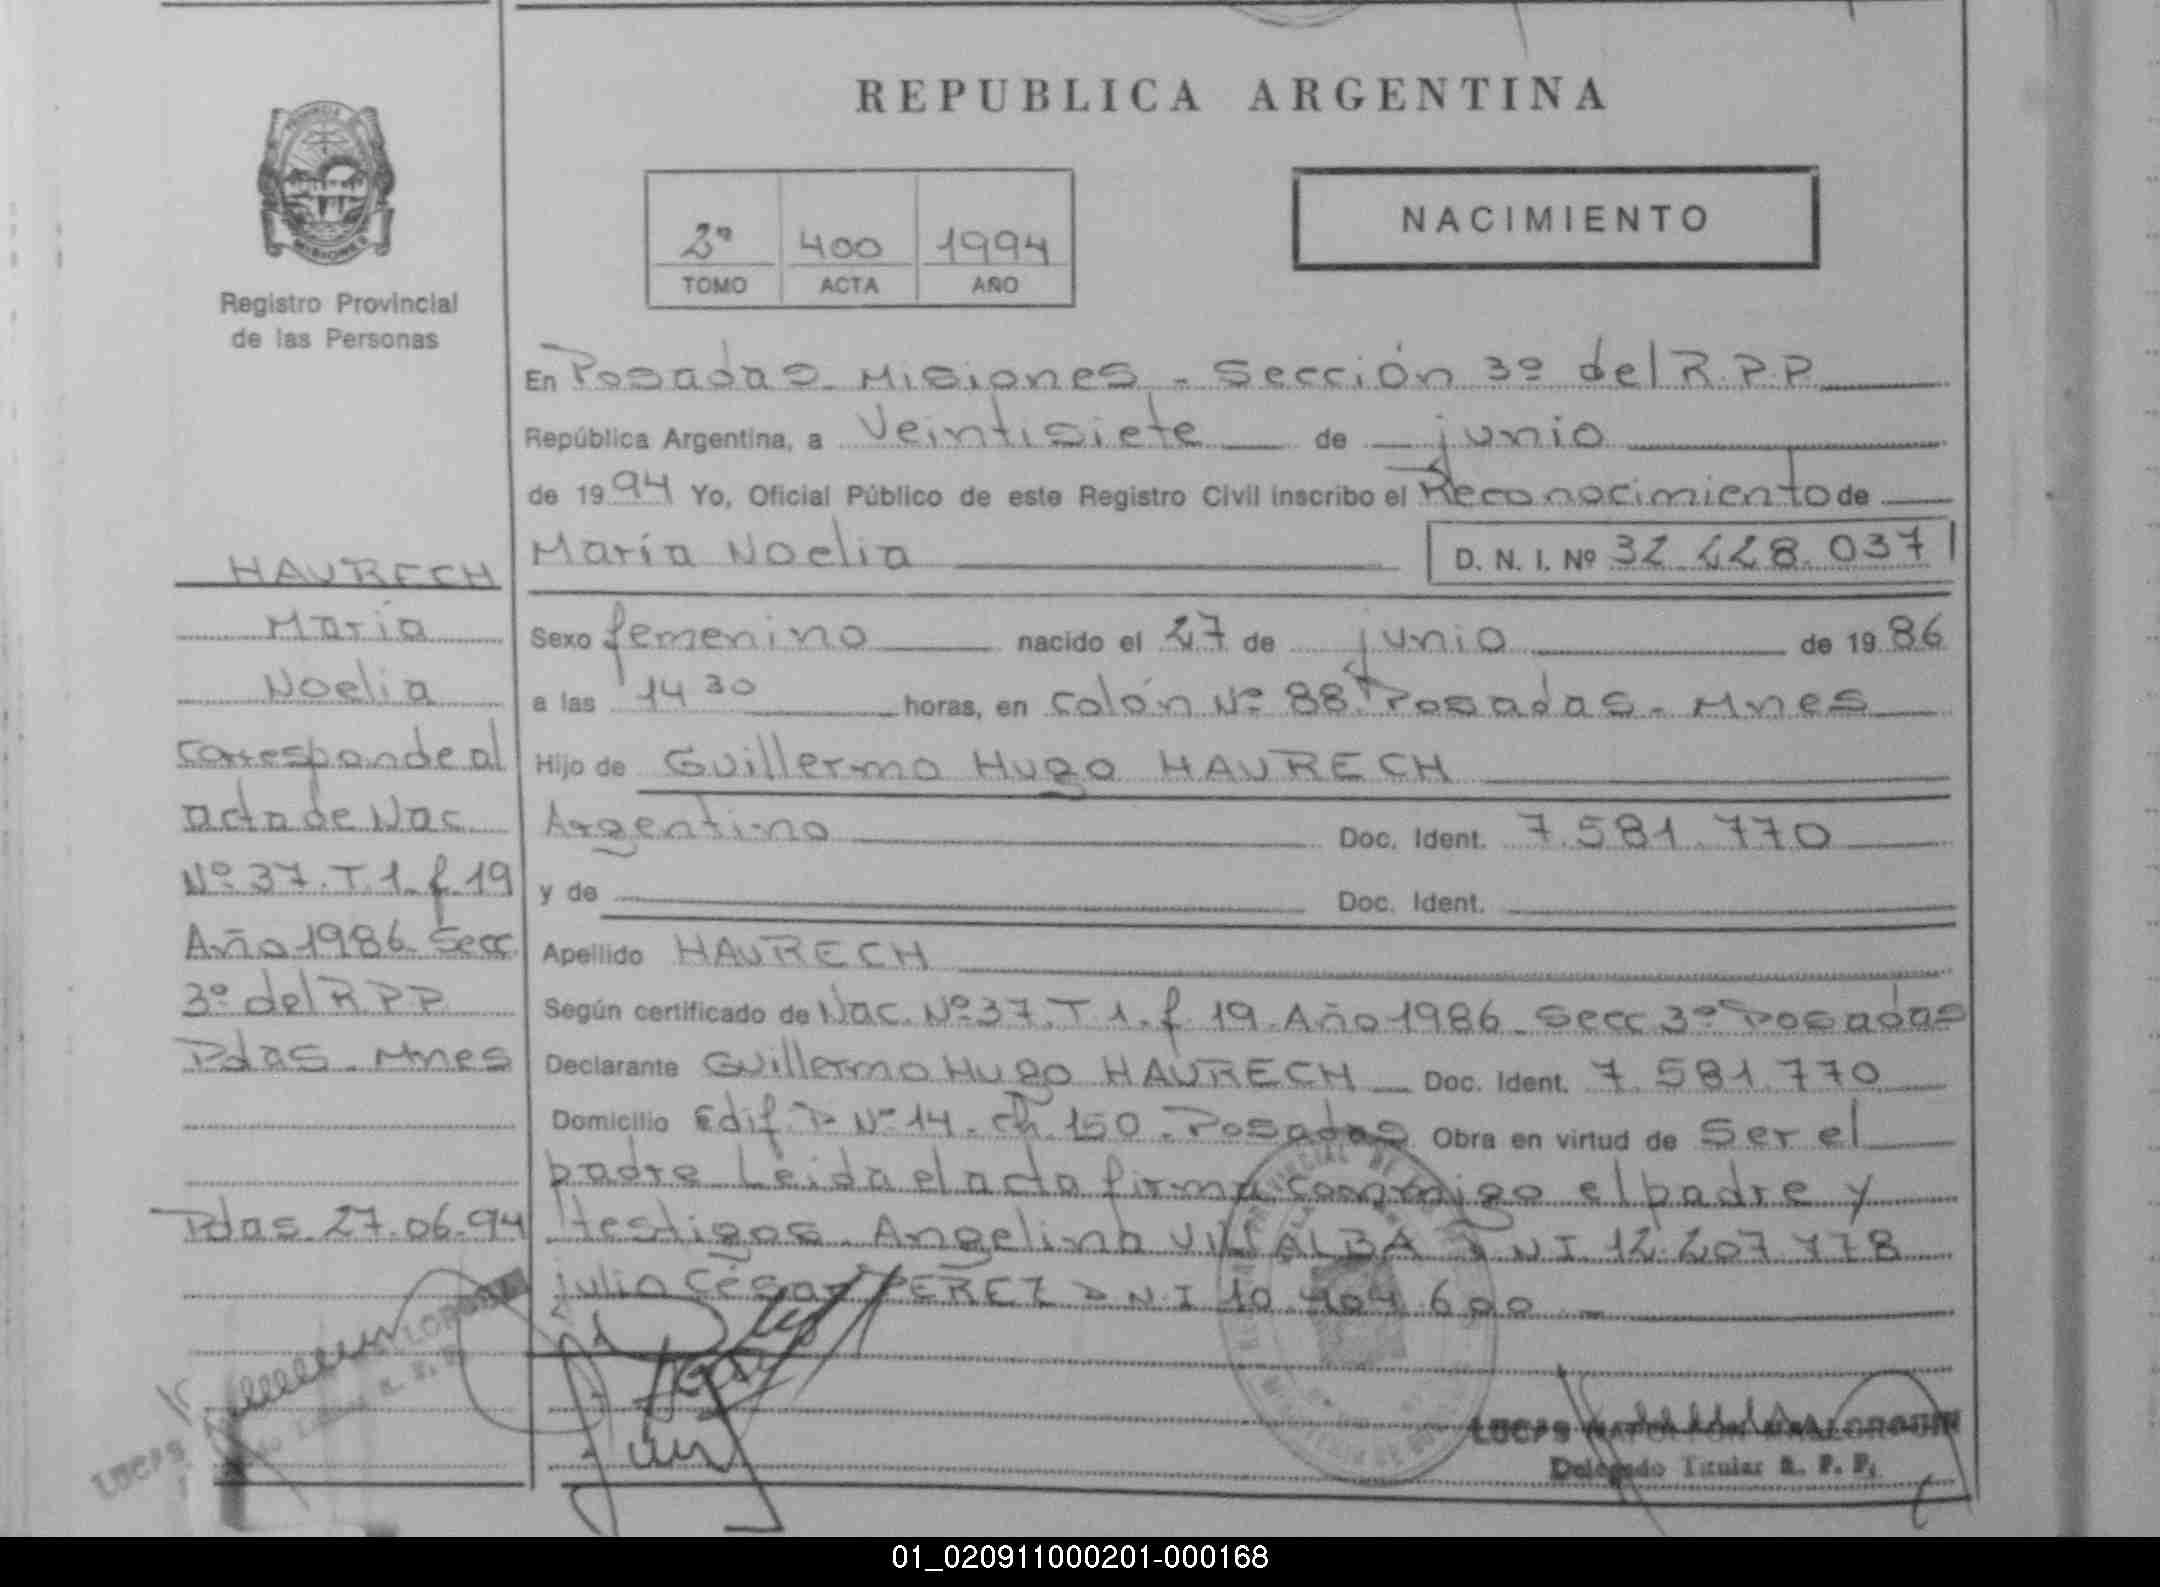 REPUBLICA ARGENTINA
NACIMIENTO
2º 400 1994
TOMO ACTA AÑO
Registro Provincial
de las Personas
HAURECH
María
Noelia
corresponde al
acta de Nac.
Nº 37. T 1. f 19
Año 1986. Secc
3º del R.P.P.
Pdas. Mnes
Pdas 27.06.94
En Posadas. Misiones. Sección 3º del R.P.P.
República Argentina, a Veintisiete de junio
de 1994 Yo, Oficial Público de este Registro Civil inscribo el Reconocimiento de
María Noelia D. N. I. Nº 32.228.037
Sexo femenino nacido el 27 de junio de 1986
a las 14 30 horas, en Colón Nº 88. Posadas. Mnes
Hijo de Guillermo Hugo HAURECH
Argentino Doc. Ident. 7.581.770
y de Doc. Ident.
Apellido HAURECH
Según certificado de Nac. Nº 37. T 1. f. 19. Año 1986. Secc 3º Posadas
Declarante Guillermo Hugo HAURECH Doc. Ident. 7.581.770
Domicilio Edif. P Nº 14. ch. 150. Posadas Obra en virtud de Ser el
padre Leida el acta firma conmigo el padre y
testigos. Angelina VILLALBA D N I 12.207.778
julio César PEREZ D N.I 10.404.600
LUCAS NAPOLEON
Delegado Titular R. P. P.
01_020911000201-000168